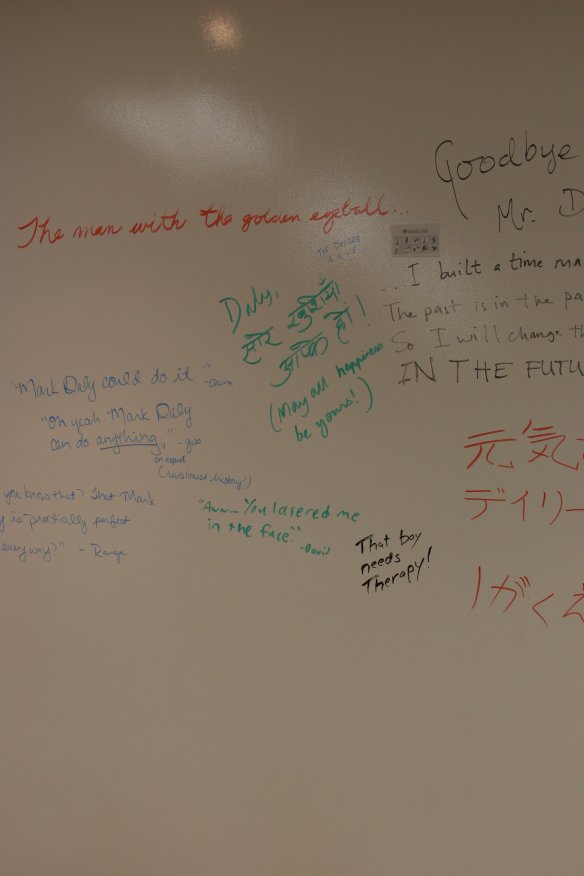 Goodbye
Mr. D
The man with the golden eyeball...
...I built a time ma
The past is in the pa
So I will change th
IN THE FUTU
Daly,
आपकी हो।
(May all happiness
be yours!)
"Mark Daly could do it."
"Oh yeah. Mark Daly
can do anything." - yoo
(revisionist history!)
you know that? That Mark
y is practically perfect
every way?" - Ranga
"Aww... You lasered me
in the face."
-David
That boy
needs
Therapy!
元気
デイリー
がくえ